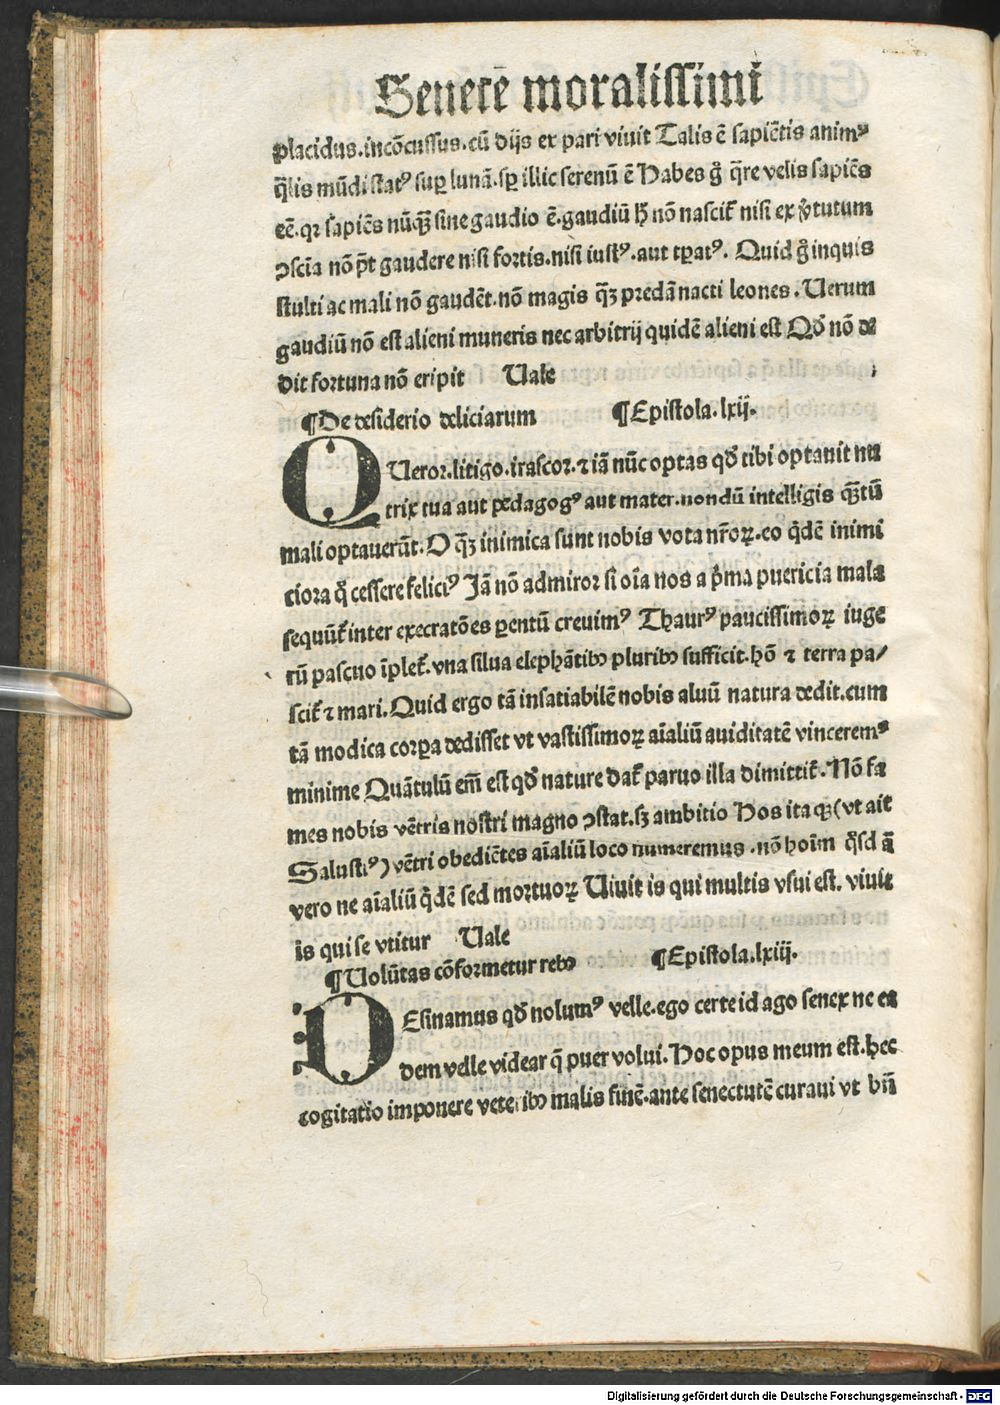 Senece̅ moralissimi
placidus.inco̅cussus.cu̅ dijs ex pari viuit Talis e̅ sapie̅tis animꝰ
q̅lis mu̅di statꝰ suꝑ luna̅.sꝑ illic serenu̅ e̅ Habes g̊ q̅re velis sapie̅s
ee̅.qꝛ sapie̅s nu̅q̅ꝫ sine gaudio e̅.gaudiu̅ hͦ no̅ nascit᷑ nisi ex v̓tutum
ꝯscīa no̅ p̅t gaudere nisi fortis.nisi iustꝰ.aut tꝑatꝰ. Quid g̊ inquis
stulti ac mali no̅ gaude̅t.no̅ magis q̅ꝫ preda̅ nacti leones. Uerum
gaudiu̅ no̅ est alieni muneris nec arbitrij quide̅ alieni est Qd̓ no̅ de
dit fortuna no̅ eripit Uale
¶De desiderio deliciarum ¶Epistola.lxij.
QUeror.litigo.irascor.⁊ ia̅ nu̅c optas qd̓ tibi optauit nu
trix tua aut pedagogꝰ aut mater.nondu̅ intelligis q̅ꝫtu̅
mali optaueru̅t. O q̅ꝫ inimica sunt nobis vota nr̅oꝝ.eo q̇de̅ inimi
ciora q̊ cessere feliciꝰ Ja̅ no̅ admiror si oi̅a nos a p̓ma puericia mala
sequu̅t᷑ inter execrato̅es ꝑentu̅ creuimꝰ Thaurꝰ paucissimoꝝ iuge
ru̅ pascuo i̅plet᷑.vna silua elepha̅tibꝰ pluribꝰ sufficit.ho̅ ⁊ terra pa/
scit᷑ ⁊ mari. Quid ergo ta̅ insatiabile̅ nobis aluu̅ natura dedit.cum
ta̅ modica corꝑa dedisset vt vastissimoꝝ ai̅aliu̅ auiditate̅ vinceremꝰ
minime Qua̅tulu̅ em̅ est qd̓ nature dat᷑ paruo illa dimittit᷑. No̅ fa
mes nobis ve̅tris nostri magno ꝯstat.sꝫ ambitio Hos itaqꝫ (vt ait
Salustiꝰ) ve̅tri obedie̅tes ai̅aliu̅ loco numeremus.no̅ hoi̅m q̊sd a̅
vero ne ai̅aliu̅ q̇de̅ sed mortuoꝝ Uiuit is qui multis vsui est. viuit
is qui se vtitur Uale
¶Uolu̅tas co̅formetur rebꝰ ¶Epistola.lxiij.
DEsinamus qd̓ nolumꝰ velle.ego certe id ago senex ne ea
dem velle videar q̅ puer volui. Hoc opus meum est.hec
cogitatio imponere veteribꝰ malis fine̅.ante senectute̅ curaui vt bn̅
Digitalisierung gefördert durch die Deutsche Forschungsgemeinschaft - DFG